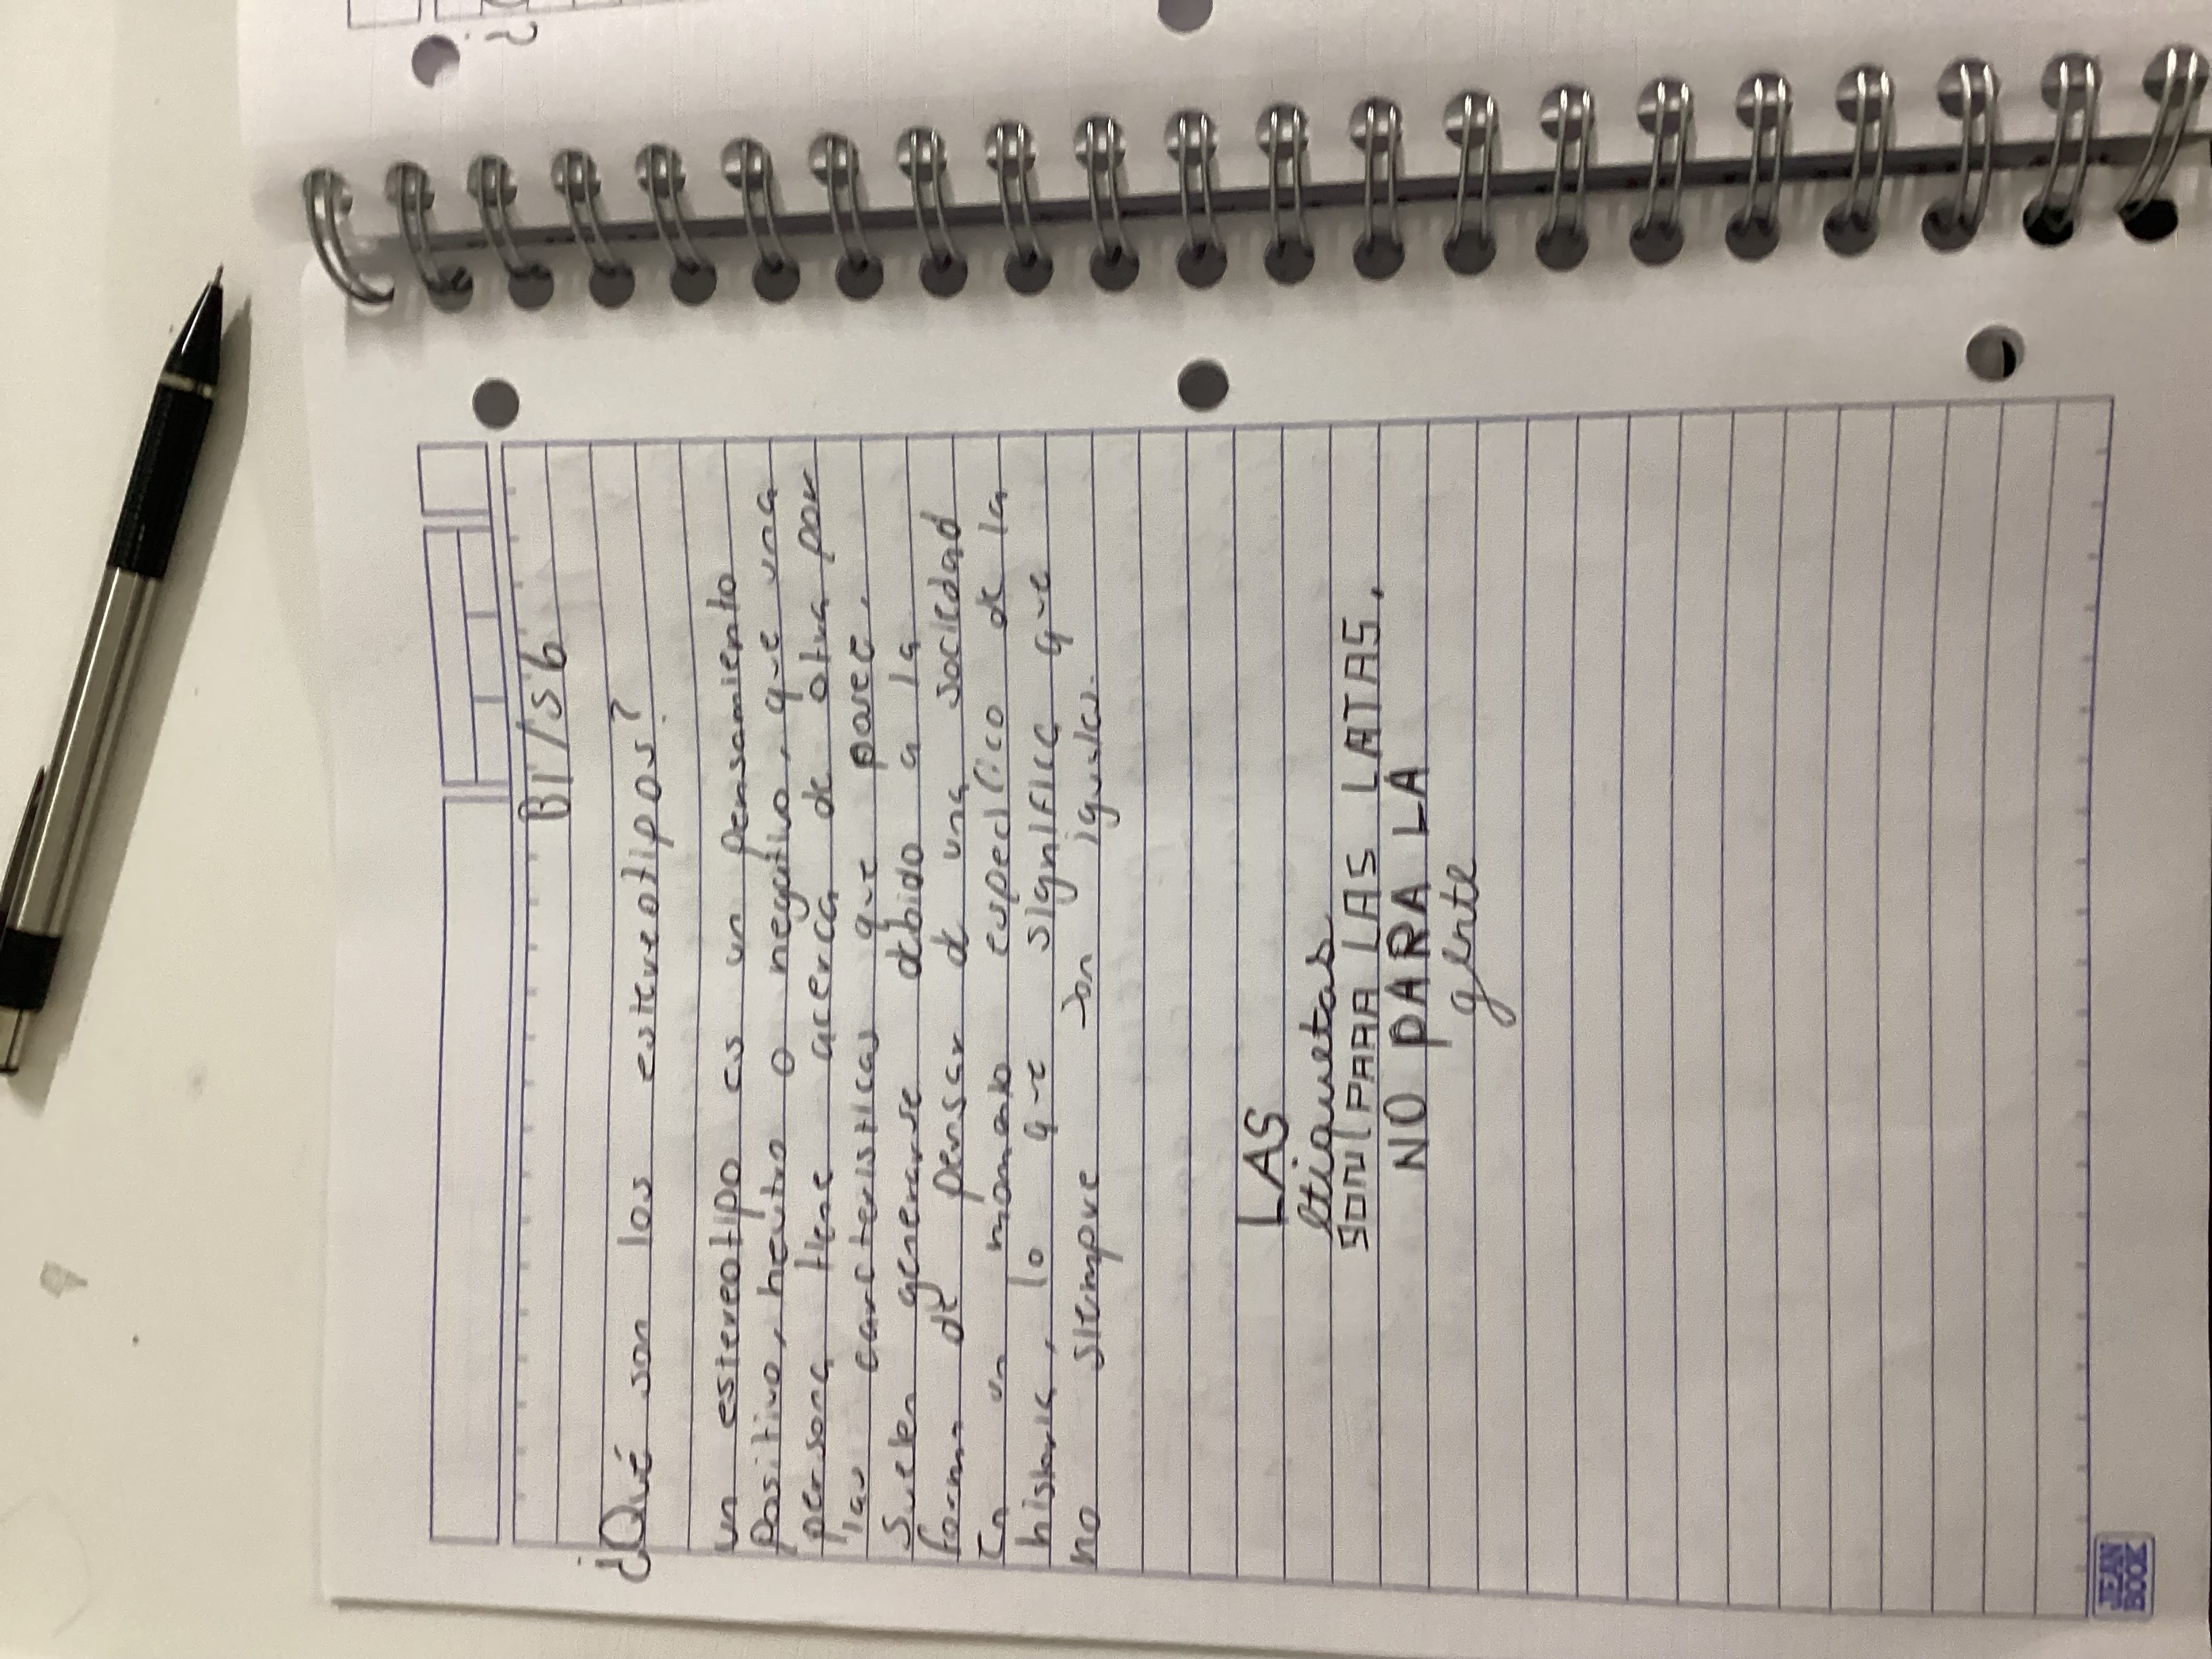 B1/S6
¿Qué son los estereotipos?
Un estereotipo es un pensamiento
positivo, neutro o negativo, que una
persona tiene acerca de otra por
las características que posee.
Suelen generarse debido a la
forma de pensar de una sociedad
en un momento específico de la
historia, lo que significa que
no siempre son iguales.
LAS
etiquetas
SON PARA LAS LATAS,
NO PARA LA
gente
JEAN
BOOK